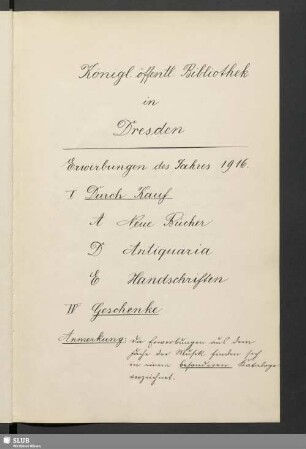 Königl. öffentl. Bibliothek
in
Dresden
Erwerbungen des Jahres 1916.
I Durch Kauf
A Neue Bücher
D Antiquaria
E Handschriften
IV Geschenke
Anmerkung: die Erwerbungen aus dem
Fache der Musik finden sich
in einem besonderen Kataloge
verzeichnet.
SLUB